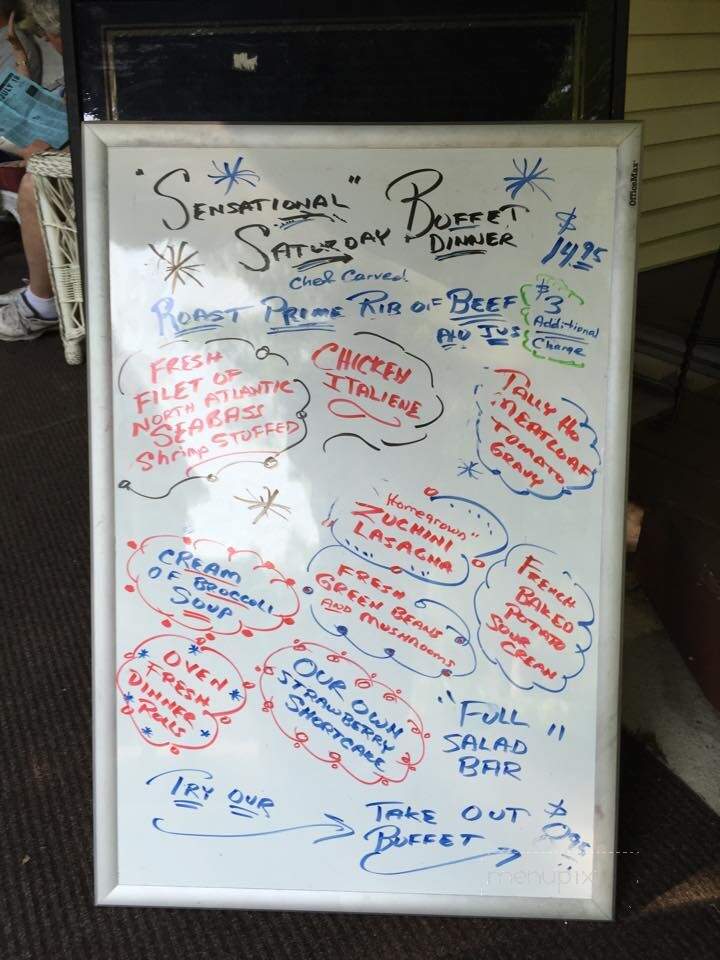 "SENSATIONAL" BUFFET
SATURDAY DINNER
$
14.95
Chef Carved
ROAST PRIME RIB OF BEEF
AU JUS
$
3
Additional
Charge
FRESH
FILET OF
NORTH ATLANTIC
SEABASS
Shrimp STUFFED
CHICKEN
ITALIENE
TALLY HO
MEATLOAF
TOMATO
GRAVY
"Homegrown"
ZUCHINI
LASAGNA
CREAM
OF BROCCOLI
SOUP
FRESH
GREEN BEANS
AND MUSHROOMS
FRENCH
BAKED
POTATO
SOUR
CREAM
OVEN
FRESH
DINNER
ROLLS
OUR OWN
STRAWBERRY
SHORTCAKE
"FULL"
SALAD
BAR
TRY OUR
TAKE OUT $
BUFFET
OfficeMax
JULY 16
menupix